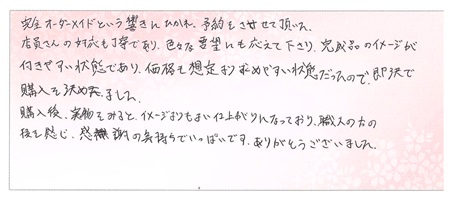 完全オーダーメイドという響きにひかれ、予約をさせて頂いた。
店員さんの対応も丁寧であり、色々な要望にも応えて下さり、完成品のイメージが
付きやすい状態であり、価格も想定より求めやすい状態だったので、即決で
購入を決めました。
購入後、実物をみると、イメージよりもよい仕上がりになっており、職人の方の
技を感じ、感謝の気持ちでいっぱいです。ありがとうございました。